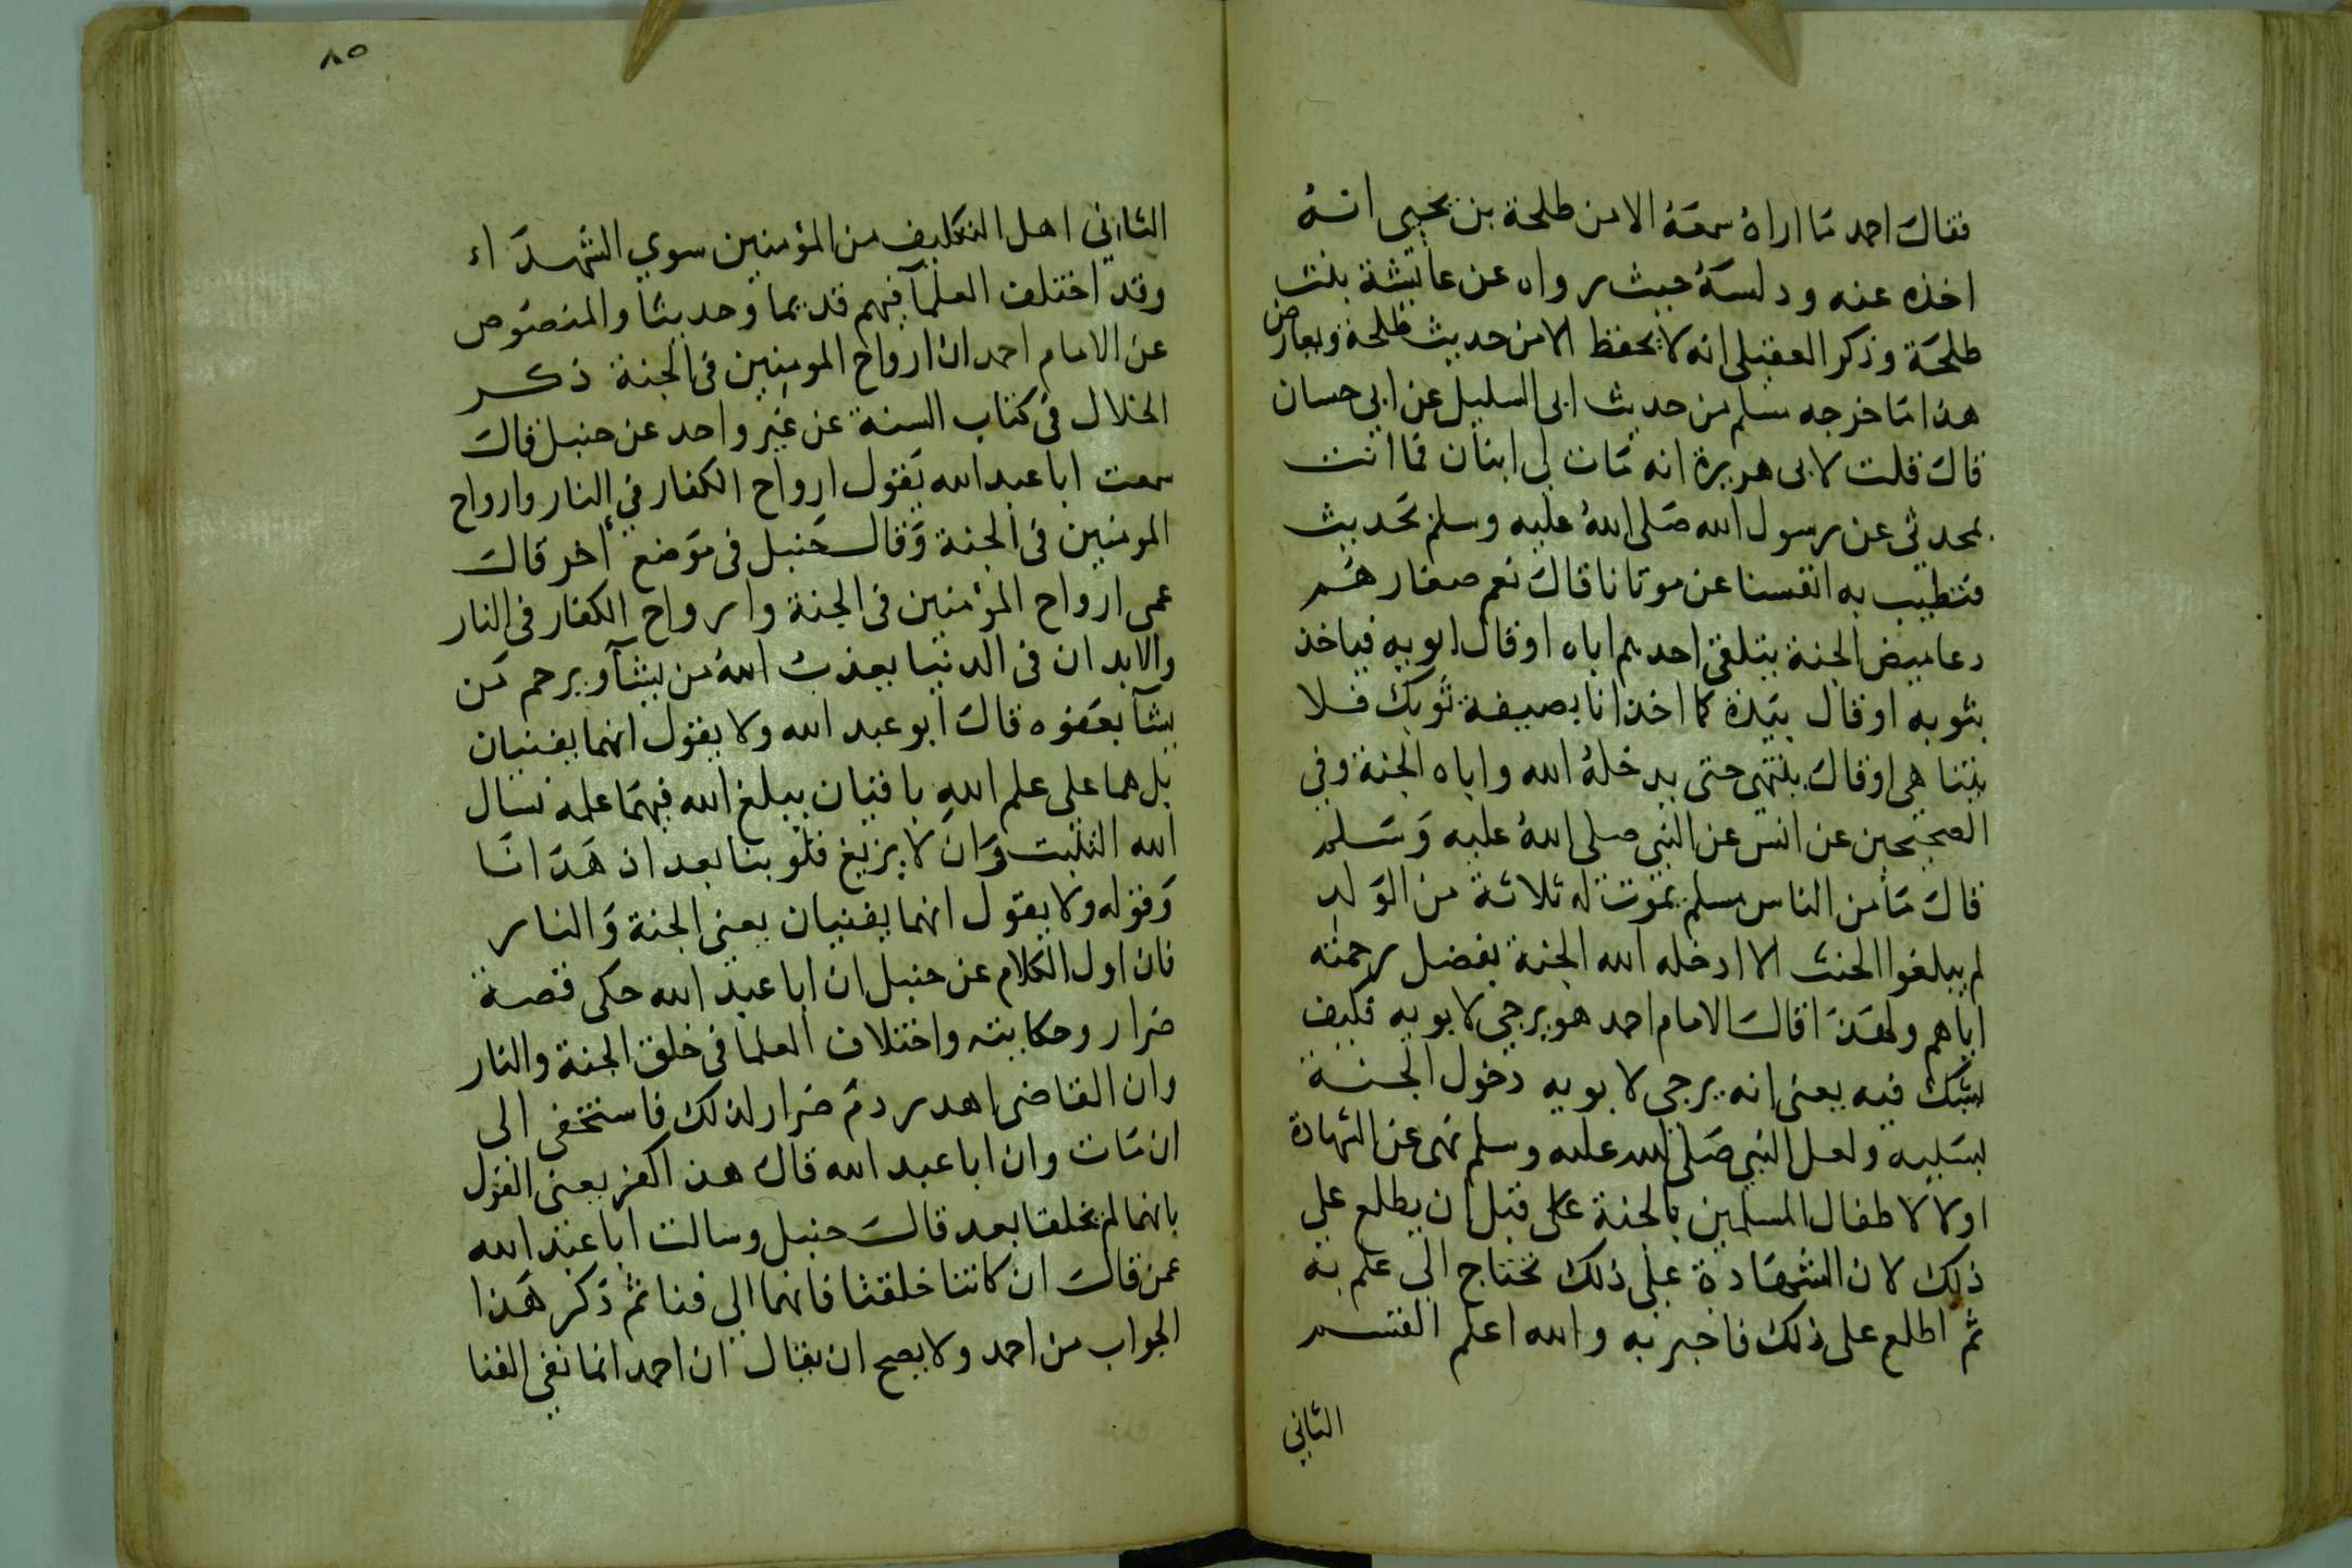 فقال احمد ما اراه سمعه الا من طلحة بن يحيى انه
اخذه عنه ودلسه حيث رواه عن عائشة بنت
طلحة وذكر العقيلي انه لا يحفظ الا من حديث طلحة ويعارض
هذا ما خرجه مسلم من حديث ابى السليل عن ابي حسان
قال قلت لابى هريرة انه مات لي ابنان فما انت
بمحدثى عن رسول الله صلى الله عليه وسلم بحديث
فتطيب به انفسنا عن موتانا قال نعم صغارهم
دعاميص الجنة يتلقى احدهم اباه او قال ابويه فياخذ
بثوبه او قال بيده كما اخذ انا بصنيفة ثوبك فلا
يتناهى او قال ينتهى حتى يدخله الله واياه الجنة وفي
الصحيحين عن انس عن النبي صلى الله عليه وسلم
قال ما من الناس مسلم يموت له ثلاثة من الولد
لم يبلغوا الحنث الا ادخله الله الجنة بفضل رحمته
اياهم ولهذا قال الامام احمد هو يرجى لابويه فكيف
يشك فيه يعنى انه يرجى لابويه دخول الجنة
بسببه ولعل النبي صلى الله عليه وسلم نهى عن الشهادة
اولا لاطفال المسلمين بالجنة على قبل ان يطلع علي
ذلك لان الشهادة على ذلك تحتاج الى علم به
ثم اطلع على ذلك فاخبر به والله اعلم القسم
الثاني
٨٥
الثاني اهل التكليف من المؤمنين سوي الشهداء
وقد اختلف العلمآ فيهم قديما وحديثا والمنصوص
عن الامام احمد ان ارواح المومنين فى الجنة ذكر
الخلال فى كتاب السنة عن غير واحد عن حنبل قال
سمعت ابا عبد الله يقول ارواح الكفار في النار وارواح
المومنين فى الجنة وقال حنبل فى موضع اخر قال
عمى ارواح المؤمنين فى الجنة وارواح الكفار فى النار
والابدان فى الدنيا يعذب الله من يشآ ويرحم من
يشآ بعفوه قال ابو عبد الله ولا يقول انهما يفنيان
بل هما على علم الله باقيان يبلغ الله فيهما علمه نسال
الله التثبت وان لا يزيغ قلوبنا بعد اذ هدانا
وقوله ولا يقول انهما يفنيان يعنى الجنة والنار
فان اول الكلام عن حنبل ان ابا عبد الله حكى قصة
ضرار وحكايته واختلاف العلما فى خلق الجنة والنار
وان القاضى اهدر دم ضرار لذلك فاستخفى الى
ان مات وان ابا عبد الله قال هذا كفر يعنى القول
بانهما لم يخلقا بعد قال حنبل وسالت ابا عبد الله
عمن قال ان كانتا خلقتا فانهما الي فنا ثم ذكر هذا
الجواب من احمد ولا يصح ان يقال ان احمد انما نفي الفنا